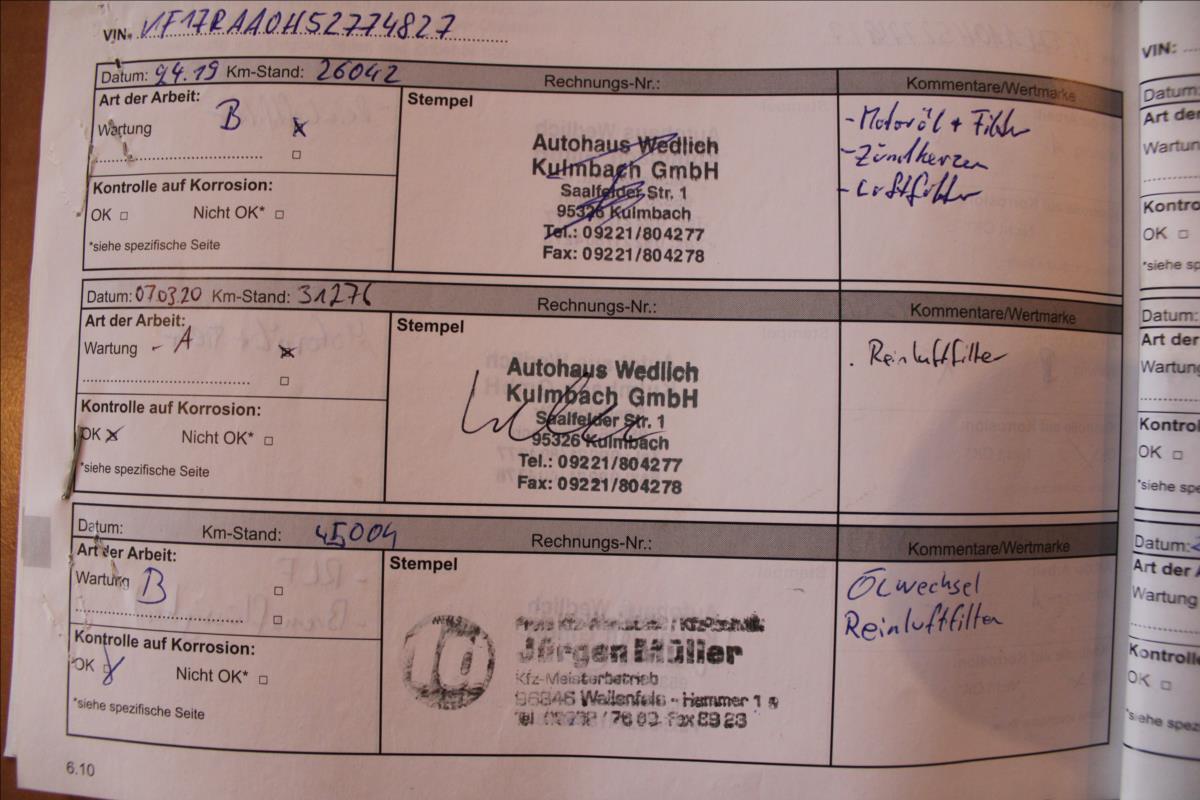 VIN. VF17RAA0H52774827
VIN:
Datum: 9.4.19 Km-Stand: 26042 Rechnungs-Nr.: Kommentare/Wertmarke
Art der Arbeit:
Wartung B
Stempel
Autohaus Wedlich
Kulmbach GmbH
Saalfelder Str. 1
95326 Kulmbach
Tel.: 09221/804277
Fax: 09221/804278
- Motoröl + Filter
- Zündkerzen
- Luftfilter
Kontrolle auf Korrosion:
OK Nicht OK*
*siehe spezifische Seite
Datum: 07.03.20 Km-Stand: 31276 Rechnungs-Nr.: Kommentare/Wertmarke
Art der Arbeit:
Wartung - A
Stempel
Autohaus Wedlich
Kulmbach GmbH
Saalfelder Str. 1
95326 Kulmbach
Tel.: 09221/804277
Fax: 09221/804278
. Reinluftfilter
Kontrolle auf Korrosion:
OK Nicht OK*
*siehe spezifische Seite
Datum: Km-Stand: 45004 Rechnungs-Nr.: Kommentare/Wertmarke
Art der Arbeit:
Wartung B
Stempel
Jürgen Müller
Kfz-Meisterbetrieb
Wallenfels - Hammer 1
Ölwechsel
Reinluftfilter
Kontrolle auf Korrosion:
OK Nicht OK*
*siehe spezifische Seite
6.10
Datum:
Art der
Wartung
OK
*siehe
Datum:
Art der
Wartung
OK
*siehe
Datum:
Art der
Wartung
OK
*siehe